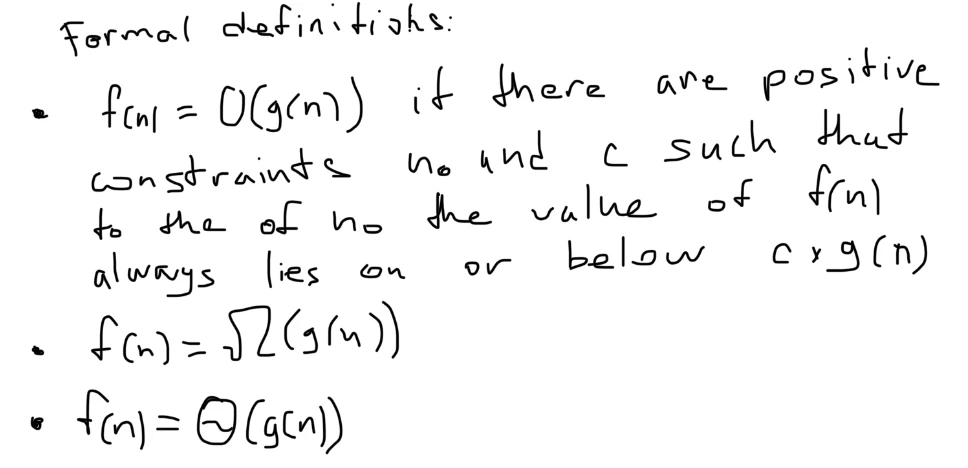 Formal definitions:
• f(n) = O(g(n)) if there are positive
constraints n₀ and c such that
to the of n₀ the value of f(n)
always lies on or below c * g(n)
• f(n) = Ω(g(n))
• f(n) = Θ(g(n))